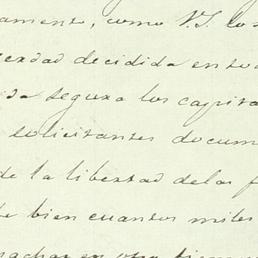 amento, como V.S. los
erdad decidida en to
segura los capita
solicitantes docum
de la libertad de las f
te bien cuantos miles